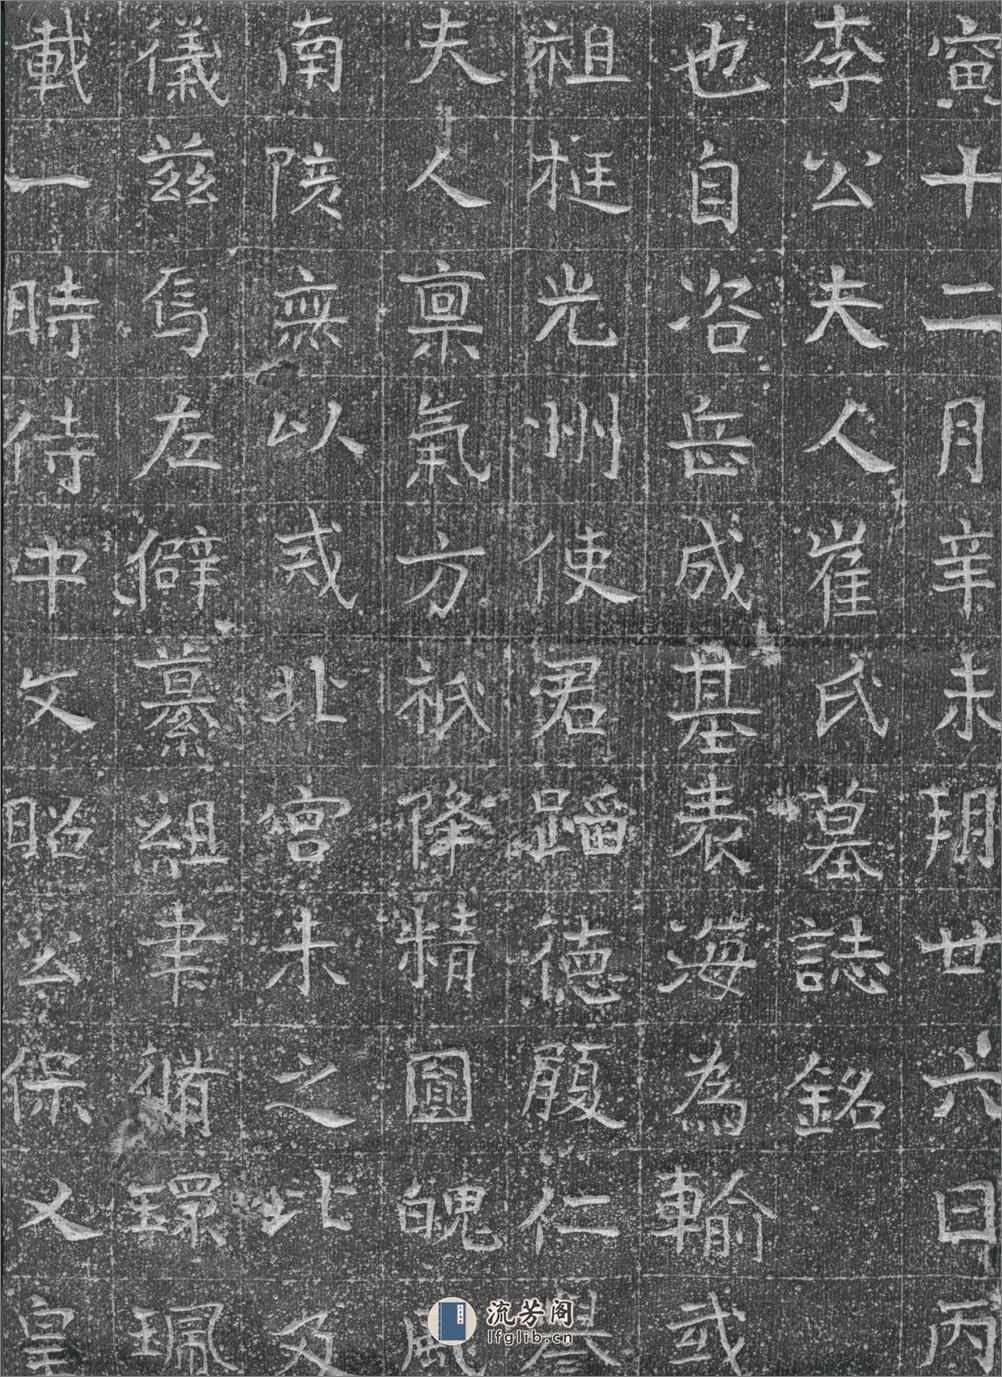 寅十二月辛未朔廿六日丙
李公夫人崔氏墓誌銘
也自咨岳成基表海為輸或
祖挺光州使君蹈德履仁譽
夫人稟氣方祇降精圓魄風
南陔無以戒北宮未之比及
儀茲焉左僻纂組聿脩環珮
載一時侍中文昭公保乂皇
流芳阁
lfglib.cn